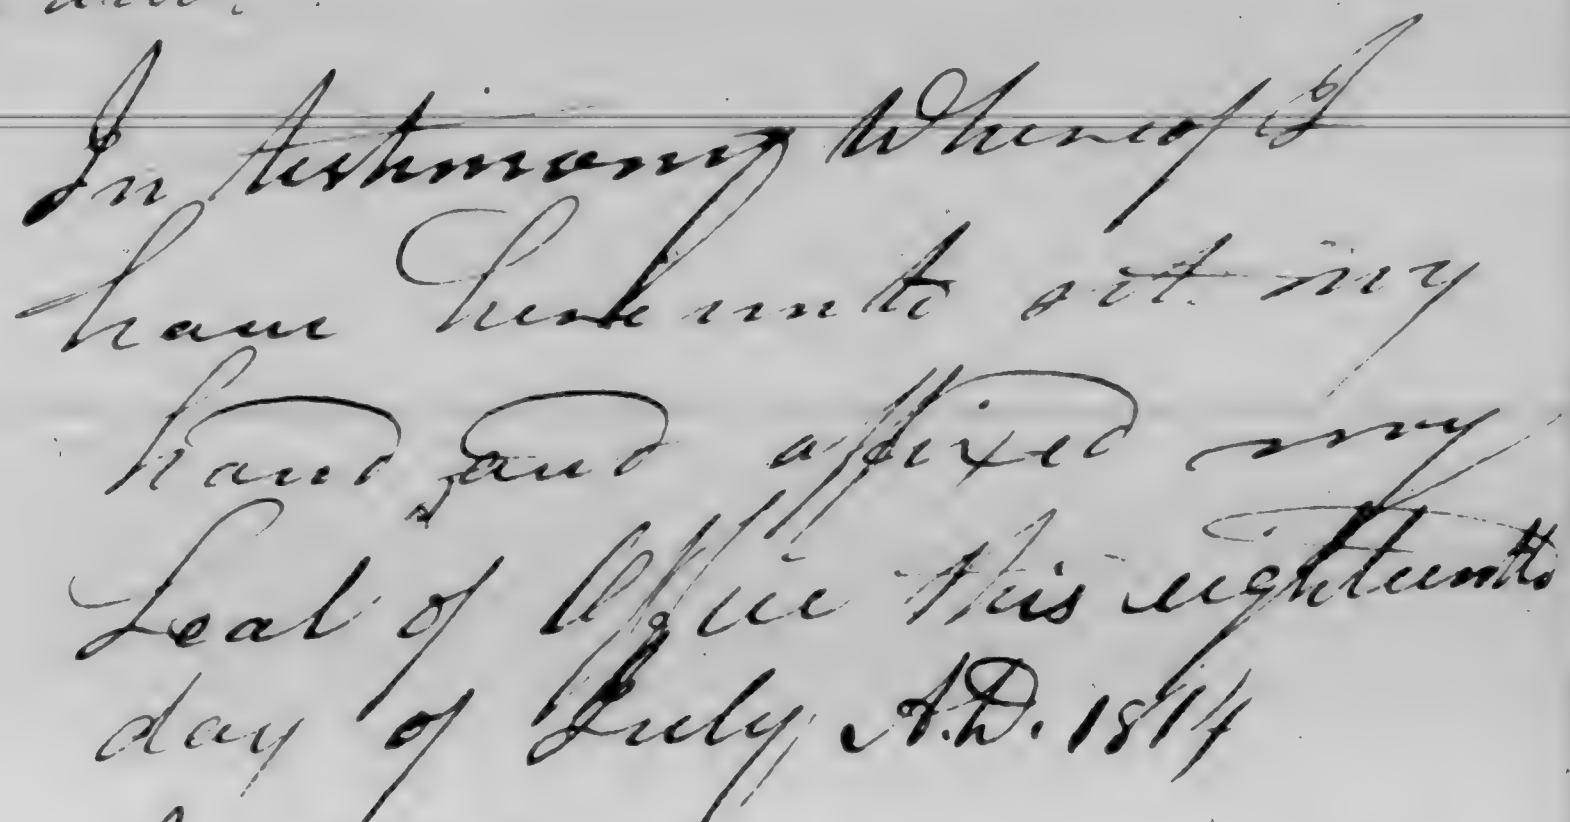 In testimony Whereof I
have hereunto set my
hand and affixed my
Seal of Office this eighteenth
day of July A.D. 1814